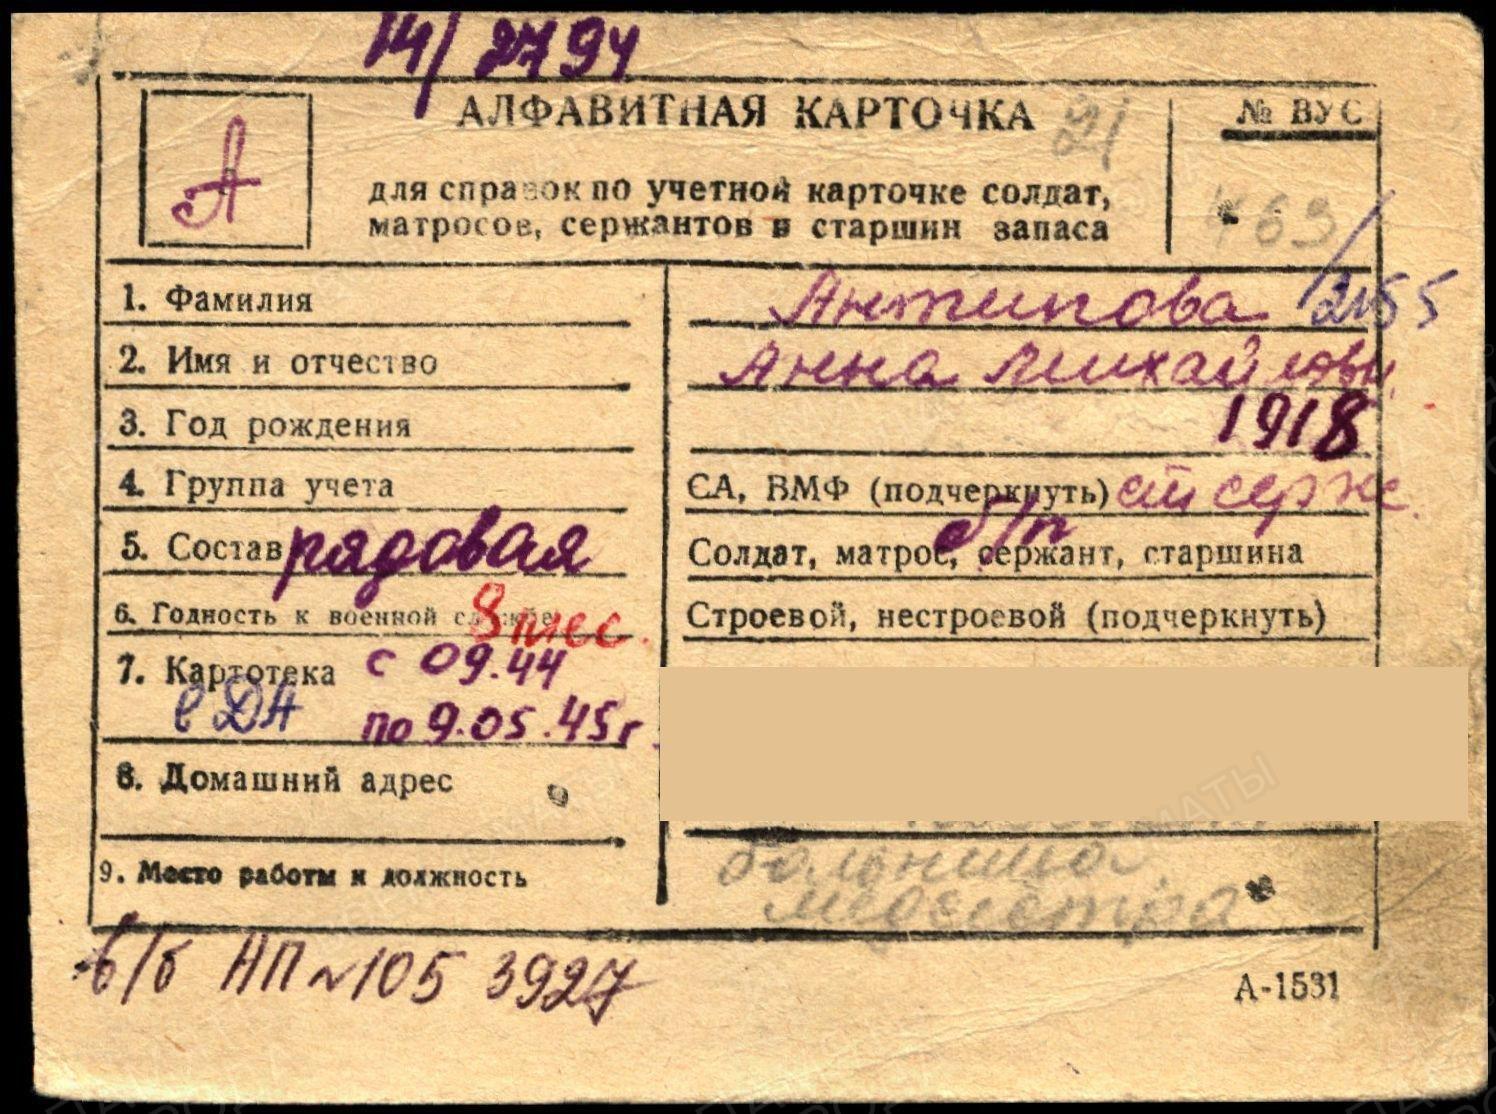 14/2794
АЛФАВИТНАЯ КАРТОЧКА
21
№ ВУС
А
для справок по учетной карточке солдат,
матросов, сержантов и старшин запаса
463
1. Фамилия Антипова /2155
2. Имя и отчество Анна Михайловн.
3. Год рождения 1918
4. Группа учета СА, ВМФ (подчеркнуть) ст серж.
5. Состав рядовая б/п Солдат, матрос, сержант, старшина
6. Годность к военной службе 8 мес. Строевой, нестроевой (подчеркнуть)
7. Картотека с 09.44
в ДА по 9.05.45г.
8. Домашний адрес
9. Место работы и должность больница
медсестра
в/б АП №105 3927
А-1531